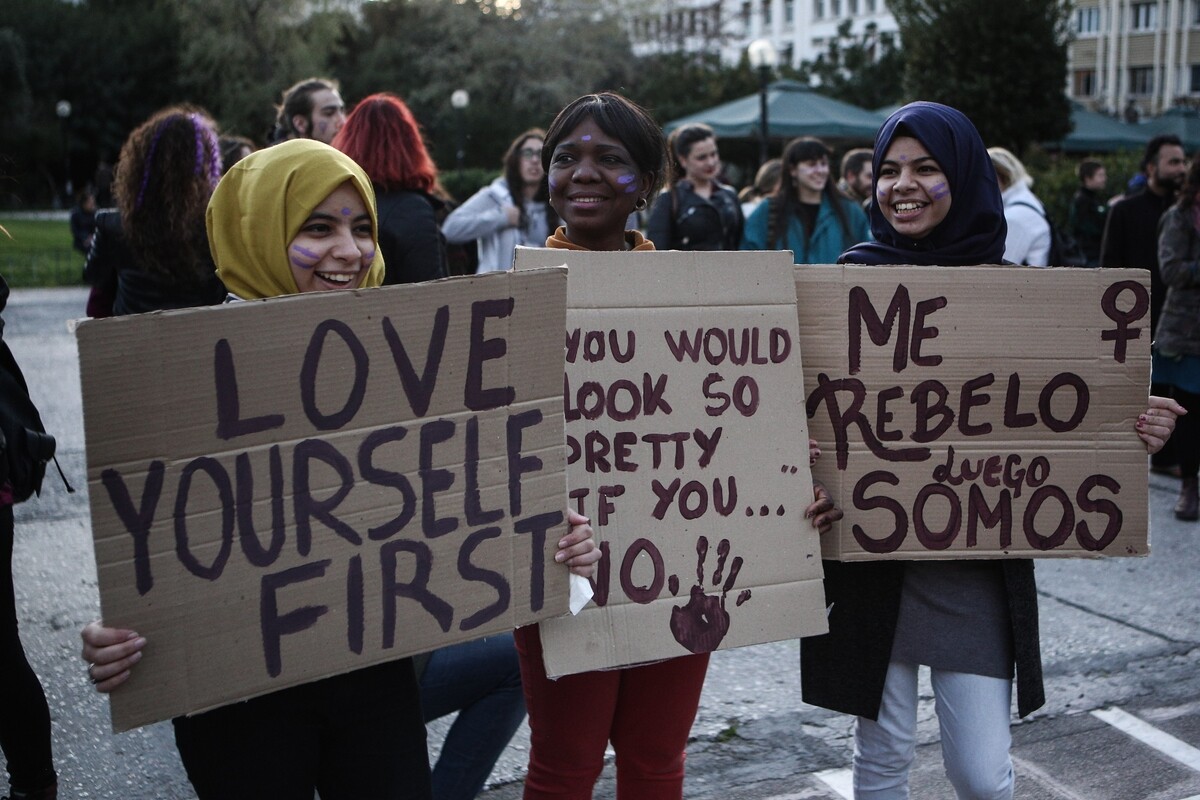 LOVE
YOURSELF
FIRST
YOU WOULD
LOOK SO
PRETTY
IF YOU..."
NO.
ME
REBELO
LUEGO
SOMOS